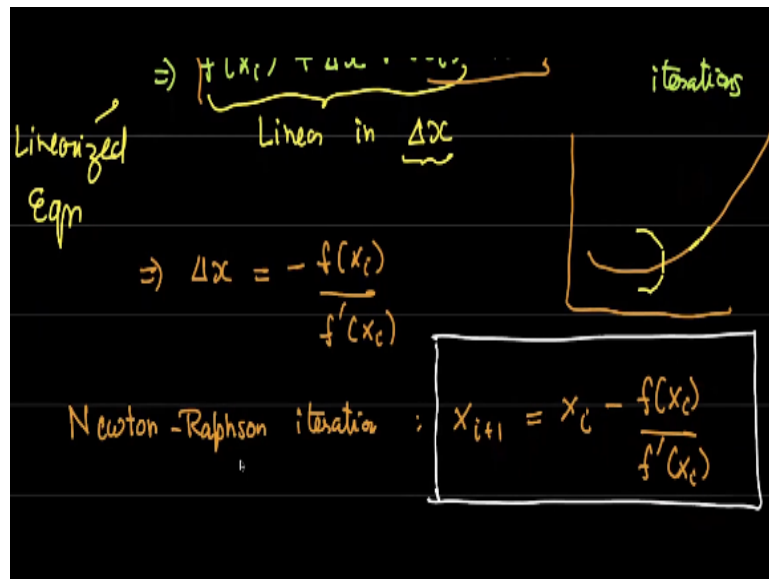 ⇒ f(xᵢ) + Δx ·
iterations
Linearized
Eqn
Linear in Δx
⇒ Δx = - f(xᵢ) / f'(xᵢ)
Newton-Raphson iteration : xᵢ₊₁ = xᵢ - f(xᵢ) / f'(xᵢ)